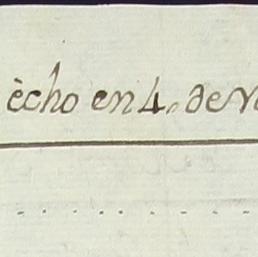 ècho en 4. de